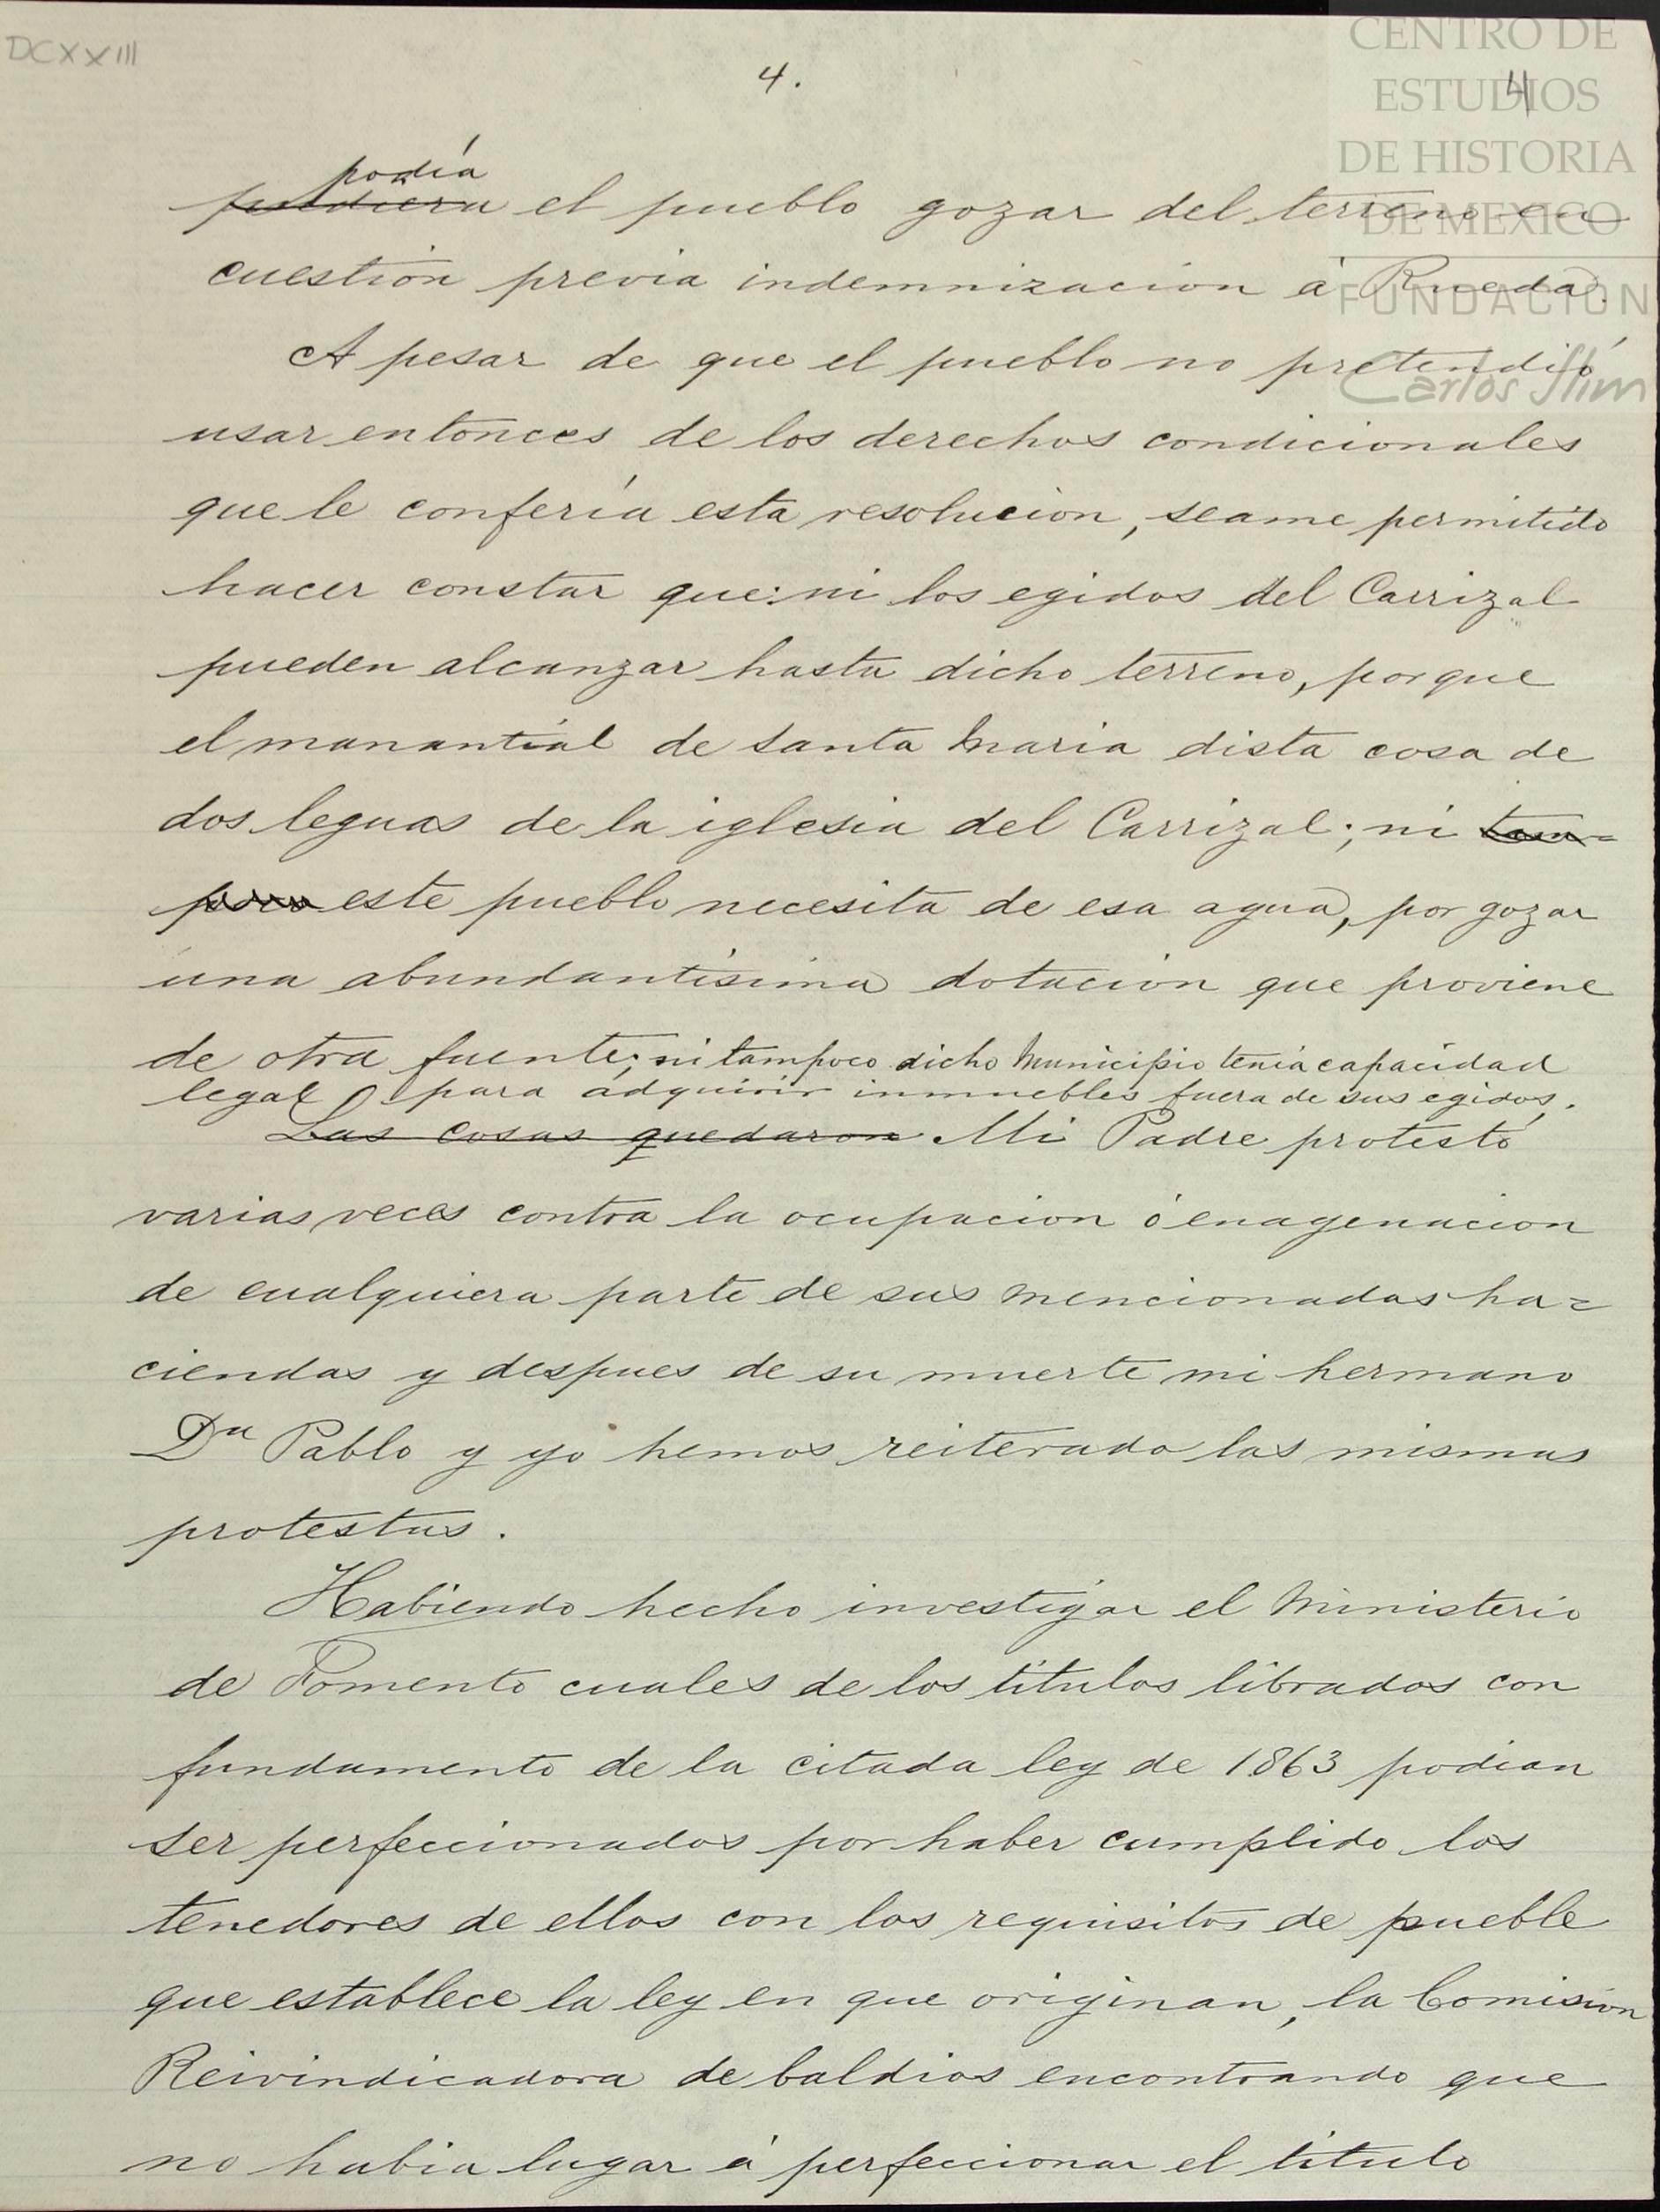 DCXXIII
4.
4
CENTRO DE
ESTUDIOS
DE HISTORIA
DE MEXICO
FUNDACIÓN
Carlos Slim
podía
pudiera el pueblo gozar del terreno en
cuestión previa indemnizacion á Rueda.
A pesar de que el pueblo no pretendió
usar entonces de los derechos condicionales
que le confería esta resolucion, seame permitido
hacer constar que: ni los egidos del Carrizal
pueden alcanzar hasta dicho terreno, porque
el manantial de Santa Maria dista cosa de
dos leguas de la iglesia del Carrizal; ni tam=
poco este pueblo necesita de esa agua, por gozar
una abundantísima dotacion que proviene
de otra fuente; ni tampoco dicho Municipio tenía capacidad
legal para adquirir inmuebles fuera de sus egidos.
Las cosas quedaron Mi Padre protestó
varias veces contra la ocupacion ó enagenacion
de cualquiera parte de sus mencionadas ha=
ciendas y despues de su muerte mi hermano
Dn Pablo y yo hemos reiterado las mismas
protestas.
Habiendo hecho investigar el Ministerio
de Fomento cuales de los títulos librados con
fundamento de la citada ley de 1863 podian
ser perfeccionados por haber cumplido los
tenedores de ellos con los requisitos de pueble
que establece la ley en que originan, la Comision
Reivindicadora de baldios encontrando que
no habia lugar á perfeccionar el título